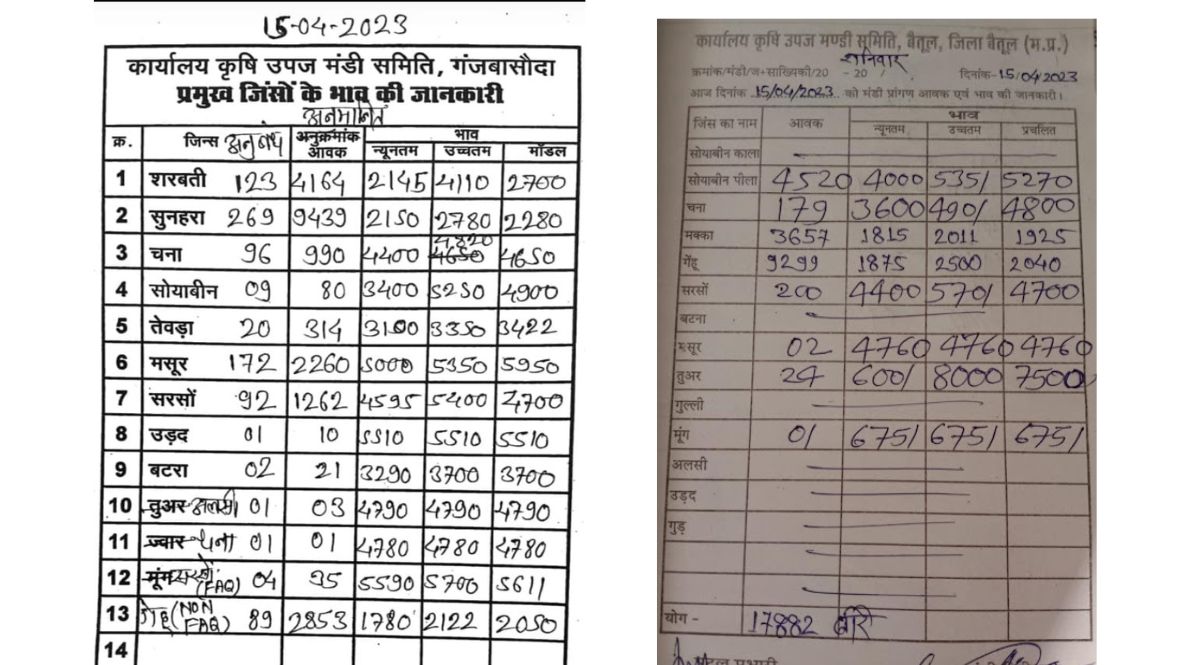 15-04-2023
कार्यालय कृषि उपज मंडी समिति, गंजबासौदा
प्रमुख जिंसों के भाव की जानकारी
अनुमानित
क्र. जिन्स अनुबंध अनुक्रमांक आवक भाव
न्यूनतम उच्चतम मॉडल
1 शरबती 123 4164 2145 4110 2700
2 सुनहरा 269 9439 2150 2780 2280
4820
3 चना 96 990 4400 4650 4650
4 सोयाबीन 09 80 3400 5250 4900
5 तेवड़ा 20 314 3100 3350 3422
6 मसूर 172 2260 5000 5350 5950
7 सरसों 92 1262 4595 5400 4700
8 उड़द 01 10 5510 5510 5510
9 बटरा 02 21 3290 3700 3700
10 तुअर अलसी 01 03 4790 4790 4790
11 ज्वार धना 01 01 4780 4780 4780
12 मूंग सरसों (FAQ) 04 95 5590 5700 5611
13 गेहूं (NON FAQ) 89 2853 1780 2122 2050
14
कार्यालय कृषि उपज मण्डी समिति, बैतूल, जिला बैतूल (म.प्र.)
शनिवार
क्रमांक/मंडी/ज+सांख्यिकी/20 - 20 / दिनांक-15/04/2023
आज दिनांक 15/04/2023 को मंडी प्रांगण आवक एवं भाव की जानकारी।
जिंस का नाम आवक भाव
न्यूनतम उच्चतम प्रचलित
सोयाबीन काला
सोयाबीन पीला 4520 4000 5351 5270
चना 179 3600 4901 4800
मक्का 3657 1815 2011 1925
गेंहू 9299 1875 2500 2040
सरसों 200 4400 5701 4700
बटना
मसूर 02 4760 4760 4760
तुअर 24 6001 8000 7500
गुल्ली
मूंग 01 6751 6751 6751
अलसी
उड़द
गुड़
योग - 17882 बोरे